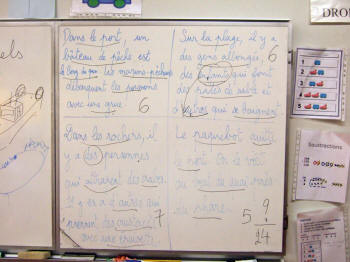 Dans le port, un
bateau de pêche est
le long du quai les marins-pêcheurs
débarquent les poissons
avec une grue. 6
Sur la plage, il y a
des gens allongés, 6
des enfants qui font
des pâtés de sable et
d'autres qui se baignent
Dans les rochers, il
y a des personnes
qui attrapent des crabes.
Il y en a d'autres qui
prennent des crustacés 7
avec une épuisette
Le paquebot quitte
le port. On le voit
au bout du quai près
du phare. 5
9
24
els
DRO
1
2
3
4
5
Soustractions